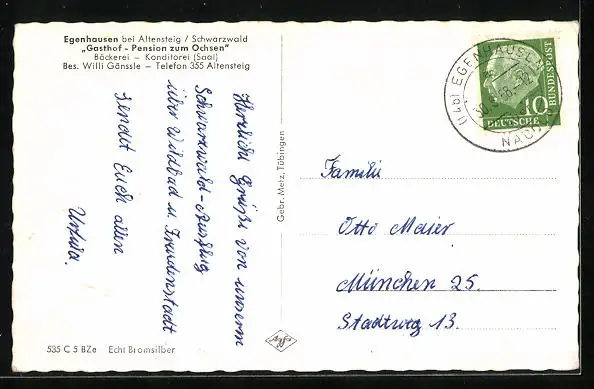 Egenhausen bei Altensteig / Schwarzwald
„Gasthof - Pension zum Ochsen"
Bäckerei – Konditorei (Saal)
Bes. Willi Gänssle – Telefon 355 Altensteig
Herzliche Grüße von unserm
Schwarzwald-Ausflug
über Wildbad u. Freudenstadt
sendet Euch allen
Gebr. Metz, Tübingen
535 C 5 BZe Echt Bromsilber
Agfa
(14b) EGENHAUSEN
10
DEUTSCHE
BUNDESPOST
Familie
Otto Maier
München 25.
Stadtweg 13.